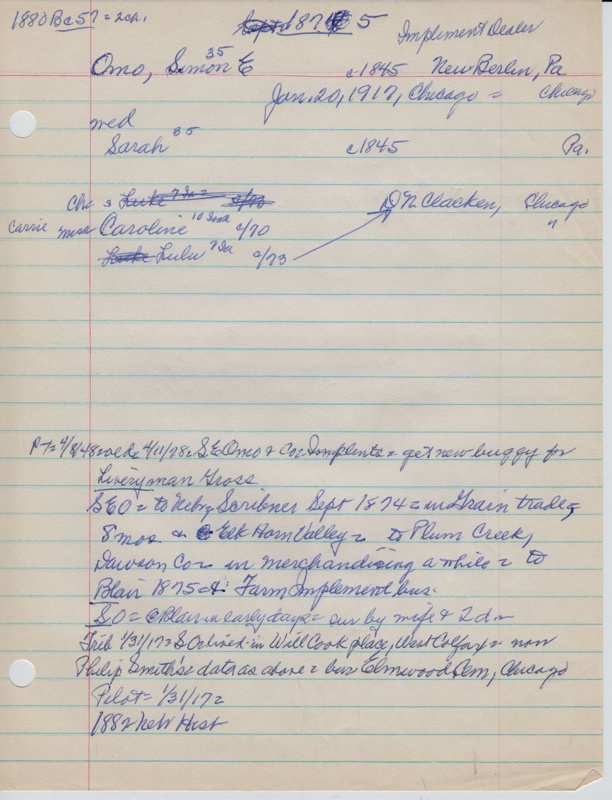 1880 Bc57 = 2ch.
Sept 1874 5
Implement Dealer
Omo, Simon E 35 c1845 New Berlin, Pa
Jan. 20, 1917, Chicago = Chicago
med
Sarah 35 c1845 Pa.
Ch = Luke 7 c/73 D N Clacken, Chicago
Carrie Miss Caroline 10 Iowa c/70 "
Luke Lulu 7 Ia c/73
PT= 4/8/48 = wed = 4/11/78 = S E Omo & Co = Implents = get new buggy for
Liveryman Gross.
S E O = to Nebr = Scribner Sept 1874 = in Grain trade,
8 mos = Elk Horn Valley = to Plum Creek,
Dawson Co = in merchandising a while = to
Blair 1875 = Farm Implement bus.
S O = Blair in early days = sur by wife & 2 d =
Trib 1/31/17 = S O = lived in Will Cook place, West Colfax = now
Philip Smith's = data as above = bur Elmwood Cem, Chicago
Pilot = 1/31/17 =
1882 Nebr Hist